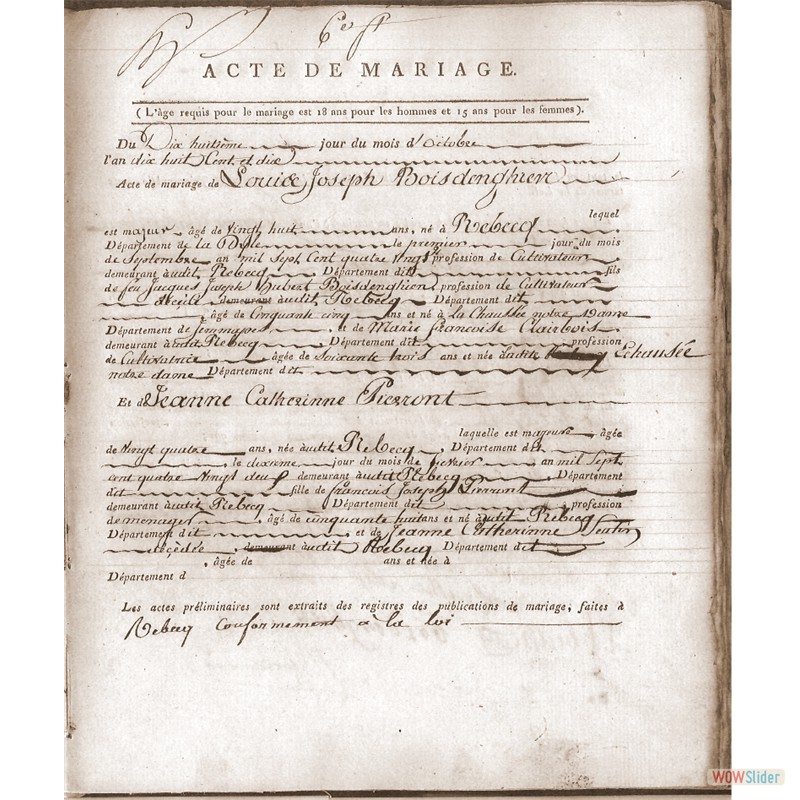 6e
ACTE DE MARIAGE.
(L'âge requis pour le mariage est 18 ans pour les hommes et 15 ans pour les femmes).
Du Dix huitième jour du mois d'Octobre
l'an dix huit Cent et dix
Acte de mariage de Louice Joseph Boisdenghien
lequel
est majeur âgé de Vingt huit ans, né à Rebecq
Département de la Dyle le premier jour du mois
de Septembre an mil Sept Cent quatre vingt profession de Cultivateur
demeurant audit Rebecq Département dit fils
de feu Jacques Joseph Hubert Boisdenghien, profession de Cultivateur
demeurant audit Rebecq Département dit
âgé de Cinquante cinq ans et né à la Chaussée notre Dame
Département de Jemmapes et de Marie francoise Clairbois
demeurant audit Rebecq Département dit profession
de Cultivatrice âgée de Soixante trois ans et née audite Echausée
notre dame Département dit
Et de Jeanne Catherinne Pierront
laquelle est majeure, âgée
de vingt quatre ans, née audit Rebecq, Département dit
le dixième jour du mois de an mil Sept
cent quatre vingt demeurant audit Rebecq Département
dit fille de francois Joseph Pierront
demeurant audit Rebecq Département dit profession
de menager, âgé de cinquante huit ans et né audit Rebecq
Département dit et de Jeanne Catherinne
décédée, demeurant audit Rebecq Département dit
, âgée de ans et née à
Département d
Les actes préliminaires sont extraits des registres des publications de mariage, faites à
Rebecq Conformement à la loi
WOWSlider